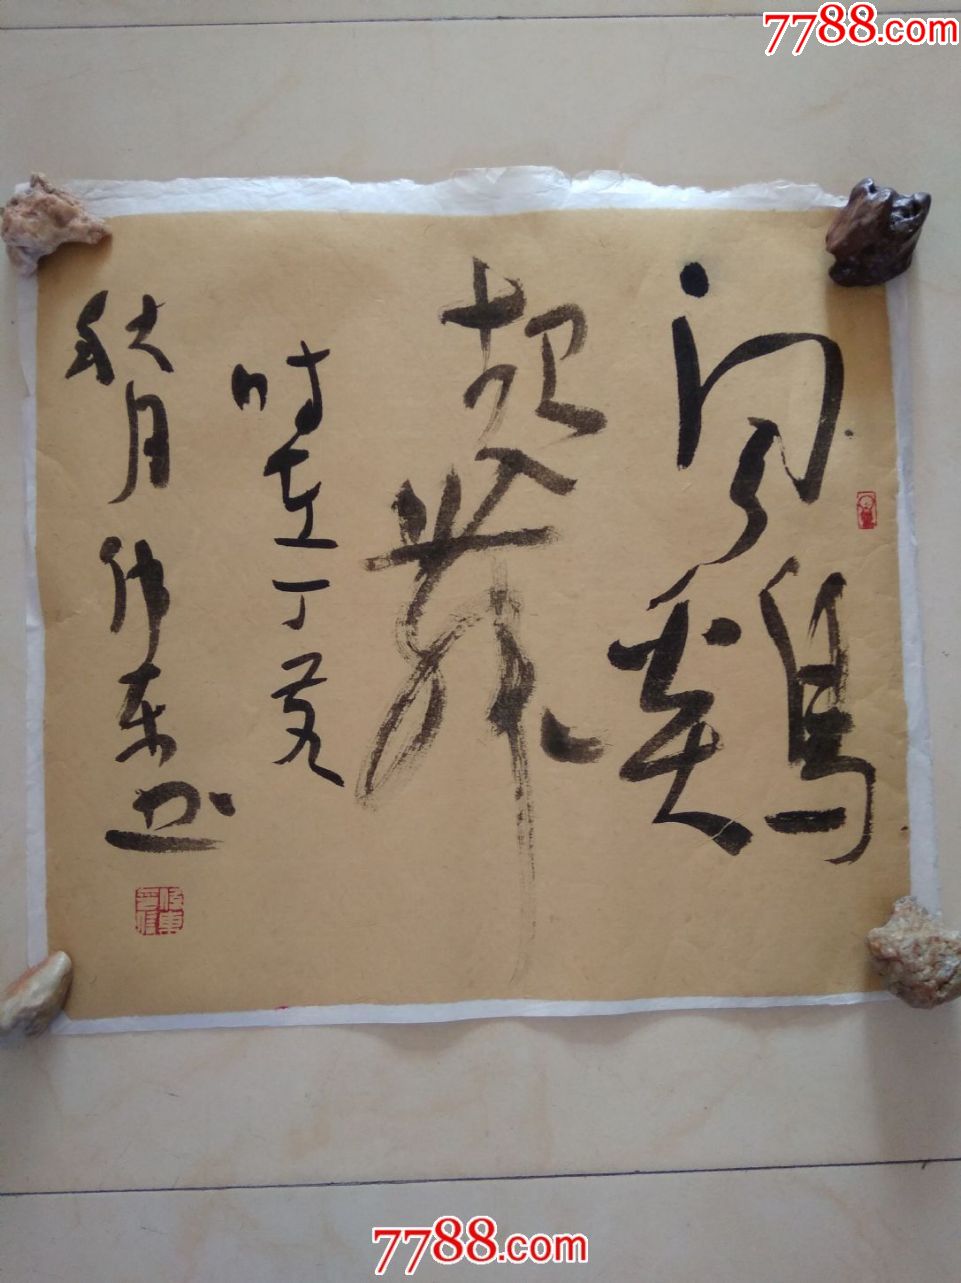 7788.com
闻鷄
起舞
时在丁亥
秋月伟东书
7788.com